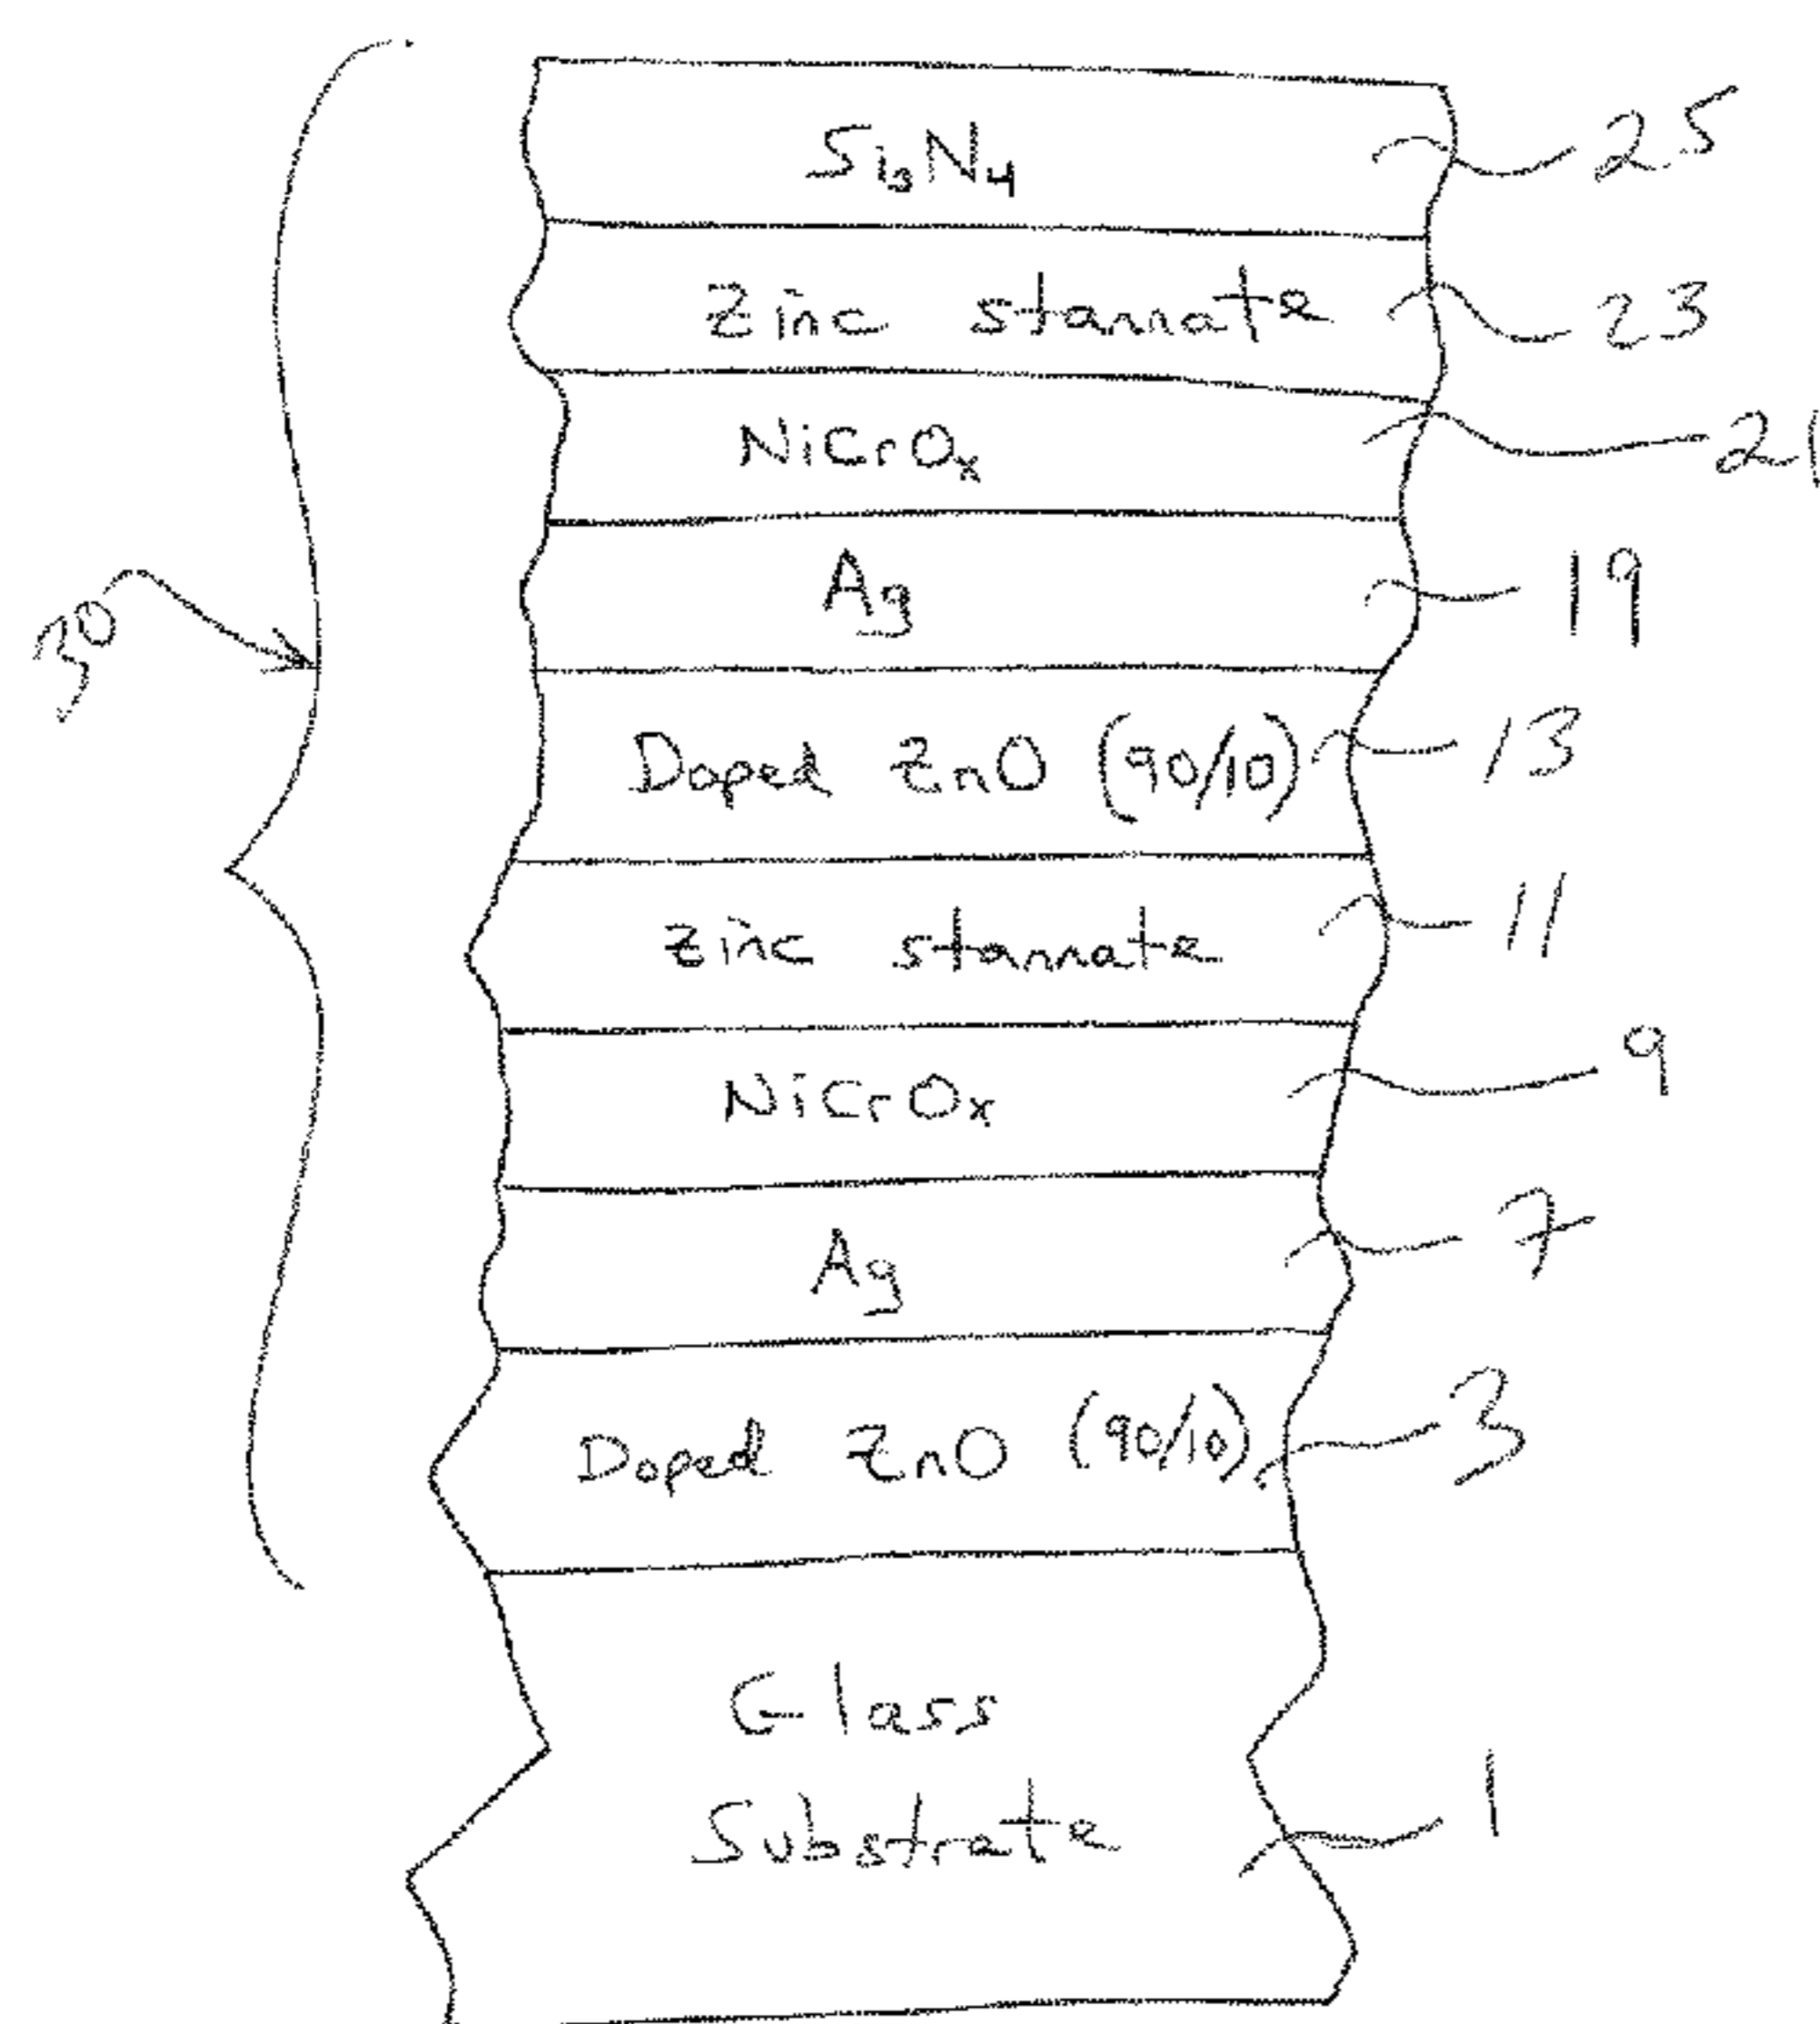 Si₃N₄ 25
Zinc stannate 23
NiCrOₓ 21
Ag 19
30
Doped ZnO (90/10) 13
zinc stannate 11
NiCrOₓ 9
Ag 7
Doped ZnO (90/10) 3
Glass
Substrate 1